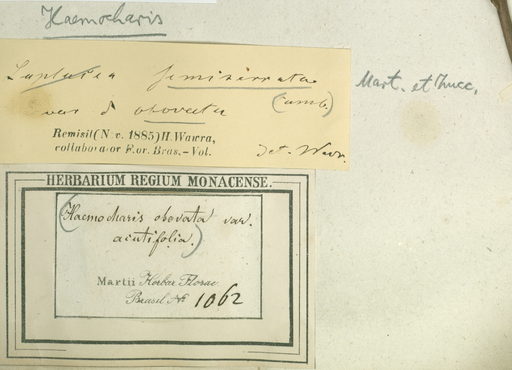 Haemocharis
Laplacea semiserrata
(Camb.)
Mart. et Zucc.
var δ obovata
Remisit (Nov. 1885) H. Wawra,
collaborator Flor. Bras. – Vol.
Det. Wawr.
HERBARIUM REGIUM MONACENSE.
(Haemocharis obovata var.
acutifolia.)
Martii Herbar. Florae
Brasil. No 1062